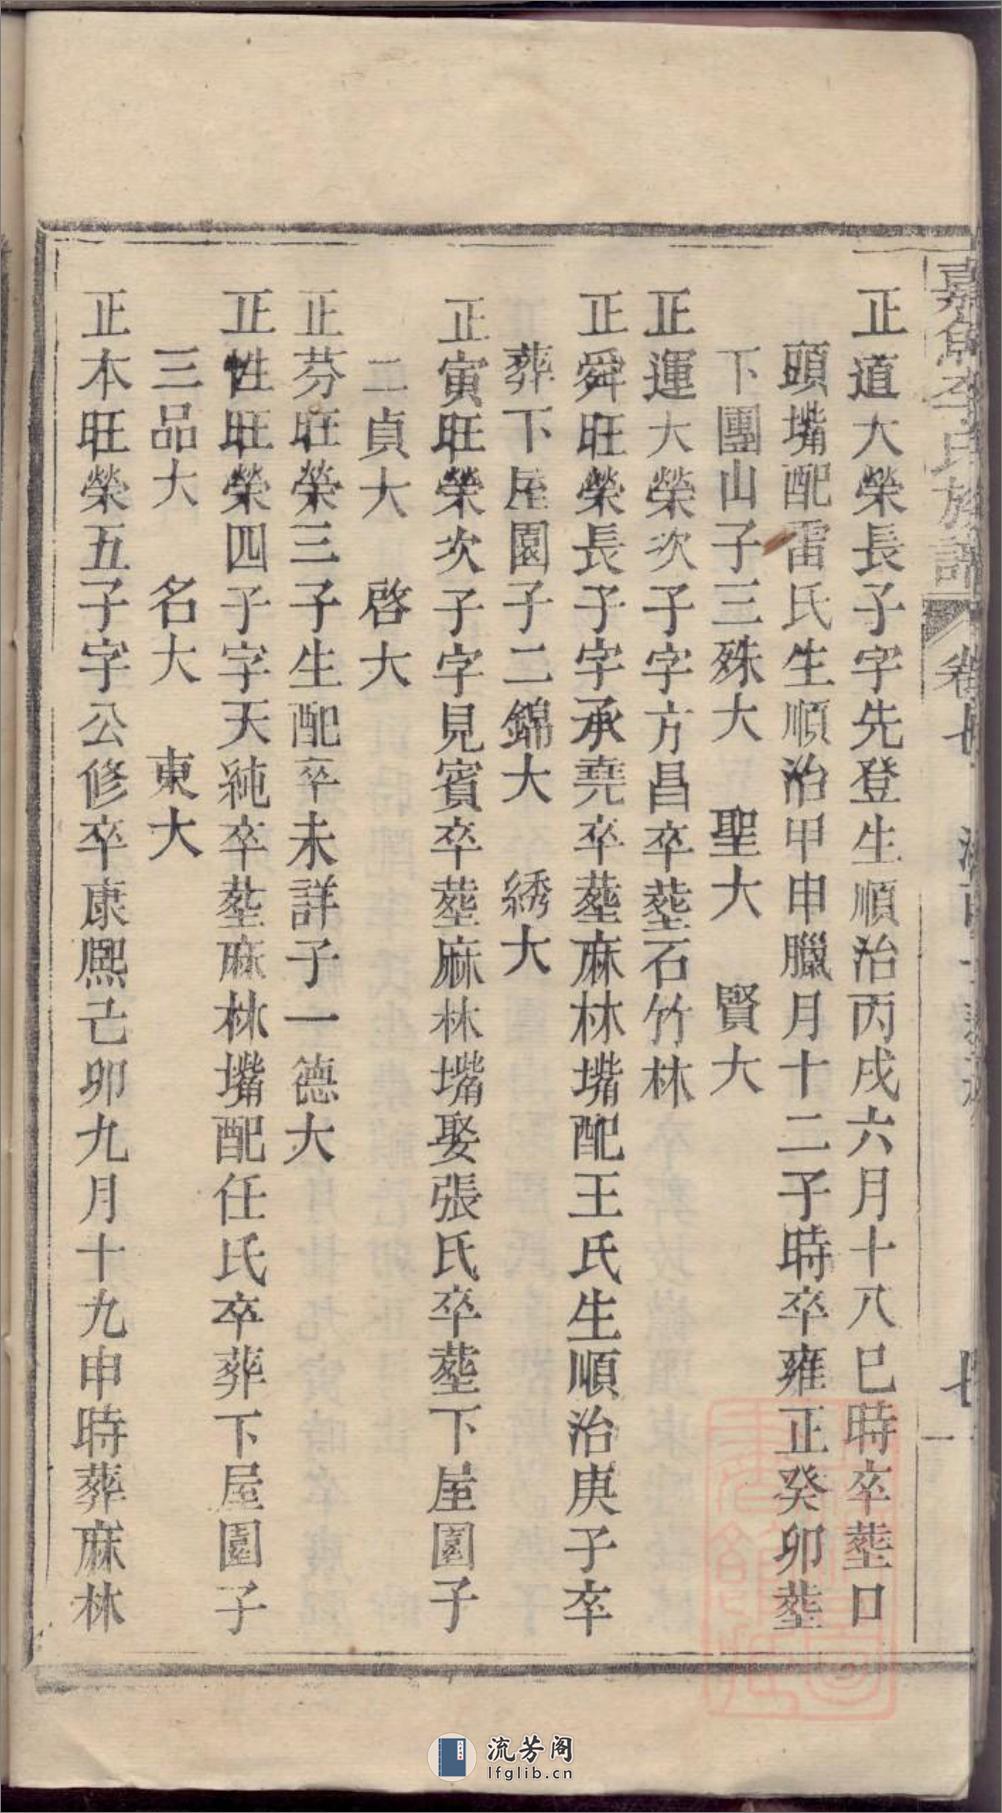 嘉魚李氏族譜 卷七 七
正道大榮長子字先登生順治丙戌六月十八巳時卒塟口
頭嘴配雷氏生順治甲申臘月十二子時卒雍正癸卯塟
下團山子三殊大 聖大 賢大
正運大榮次子字方昌卒塟石竹林
正舜旺榮長子字承堯卒塟麻林嘴配王氏生順治庚子卒
葬下屋園子二錦大 綉大
正寅旺榮次子字見賓卒塟麻林嘴娶張氏卒塟下屋園子
二貞大 啓大
正芬旺榮三子生配卒未詳子一德大
正性旺榮四子字天純卒塟麻林嘴配任氏卒葬下屋園子
三品大 名大 東大
正本旺榮五子字公修卒康熙己卯九月十九申時葬麻林
流芳阁
lfglib.cn